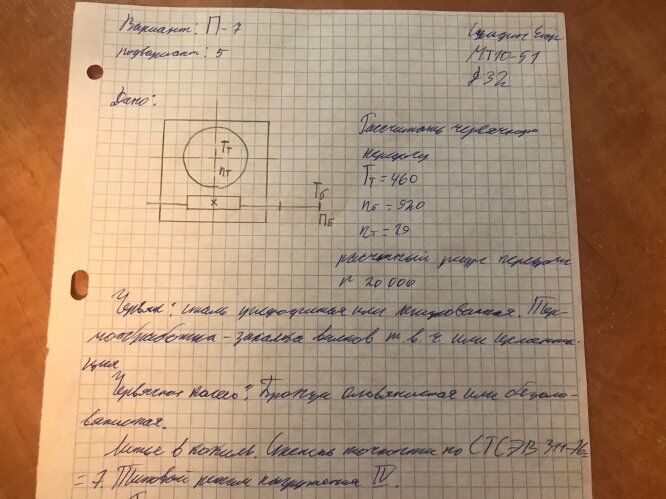 Вариант: П-7
подвариант: 5
МТ10-51
Дано:
Тт
nт
Тб
nб
Рассчитать червячную
передачу
Тт = 460
nб = 920
nт = 29
расчетный ресурс передачи
20 000
Червяк: сталь или легированная. Тер-
мообработка - закалка витков т.в.ч или цемента-
ция
Червячное колесо: Бронза оловянистая или безоло-
вянистая.
Литье в кокиль. Степень точности по СТСЭВ 311-76
= 7. Типовой режим нагружения IV.